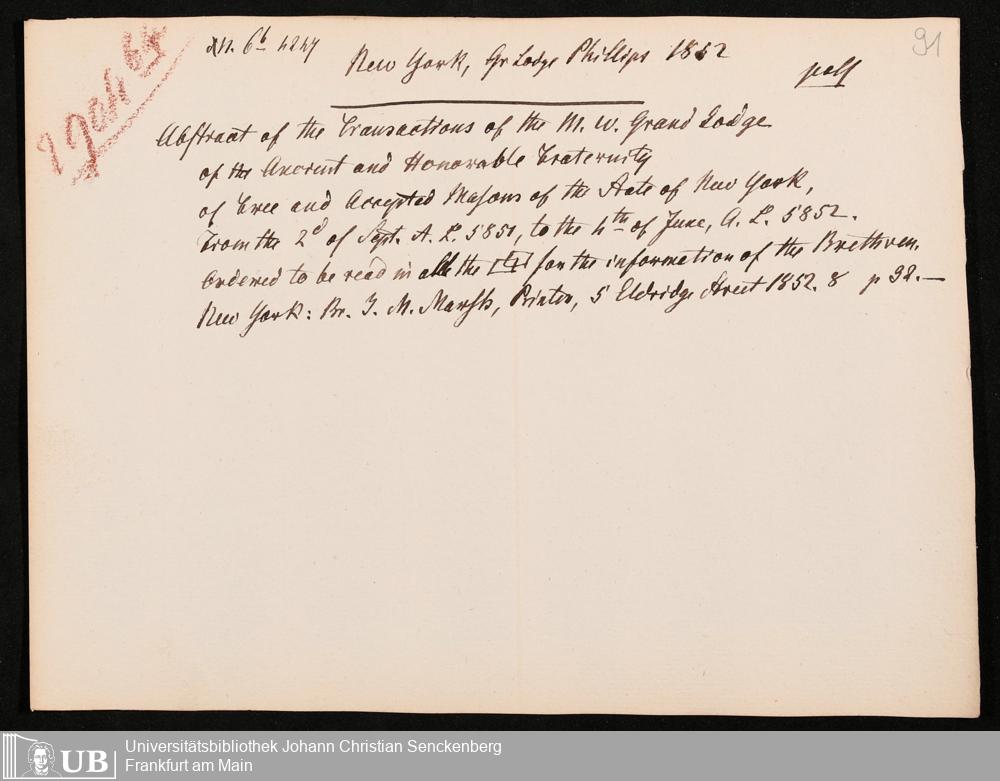 XII. 6b 4247
New York, Gr Lodge Phillips 1852
91
Abstract of the Transactions of the M. W. Grand Lodge
of the Ancient and Honorable Fraternity
of Free and Accepted Masons of the State of New York,
From the 2d of Sept. A. L. 5851, to the 4th of June, A. L. 5852.
Ordered to be read in all the for the information of the Brethren.
New York: Br. J. M. Marsh, Printer, 5 Eldridge Street 1852. 8 p 92.—
UB
Universitätsbibliothek Johann Christian Senckenberg
Frankfurt am Main